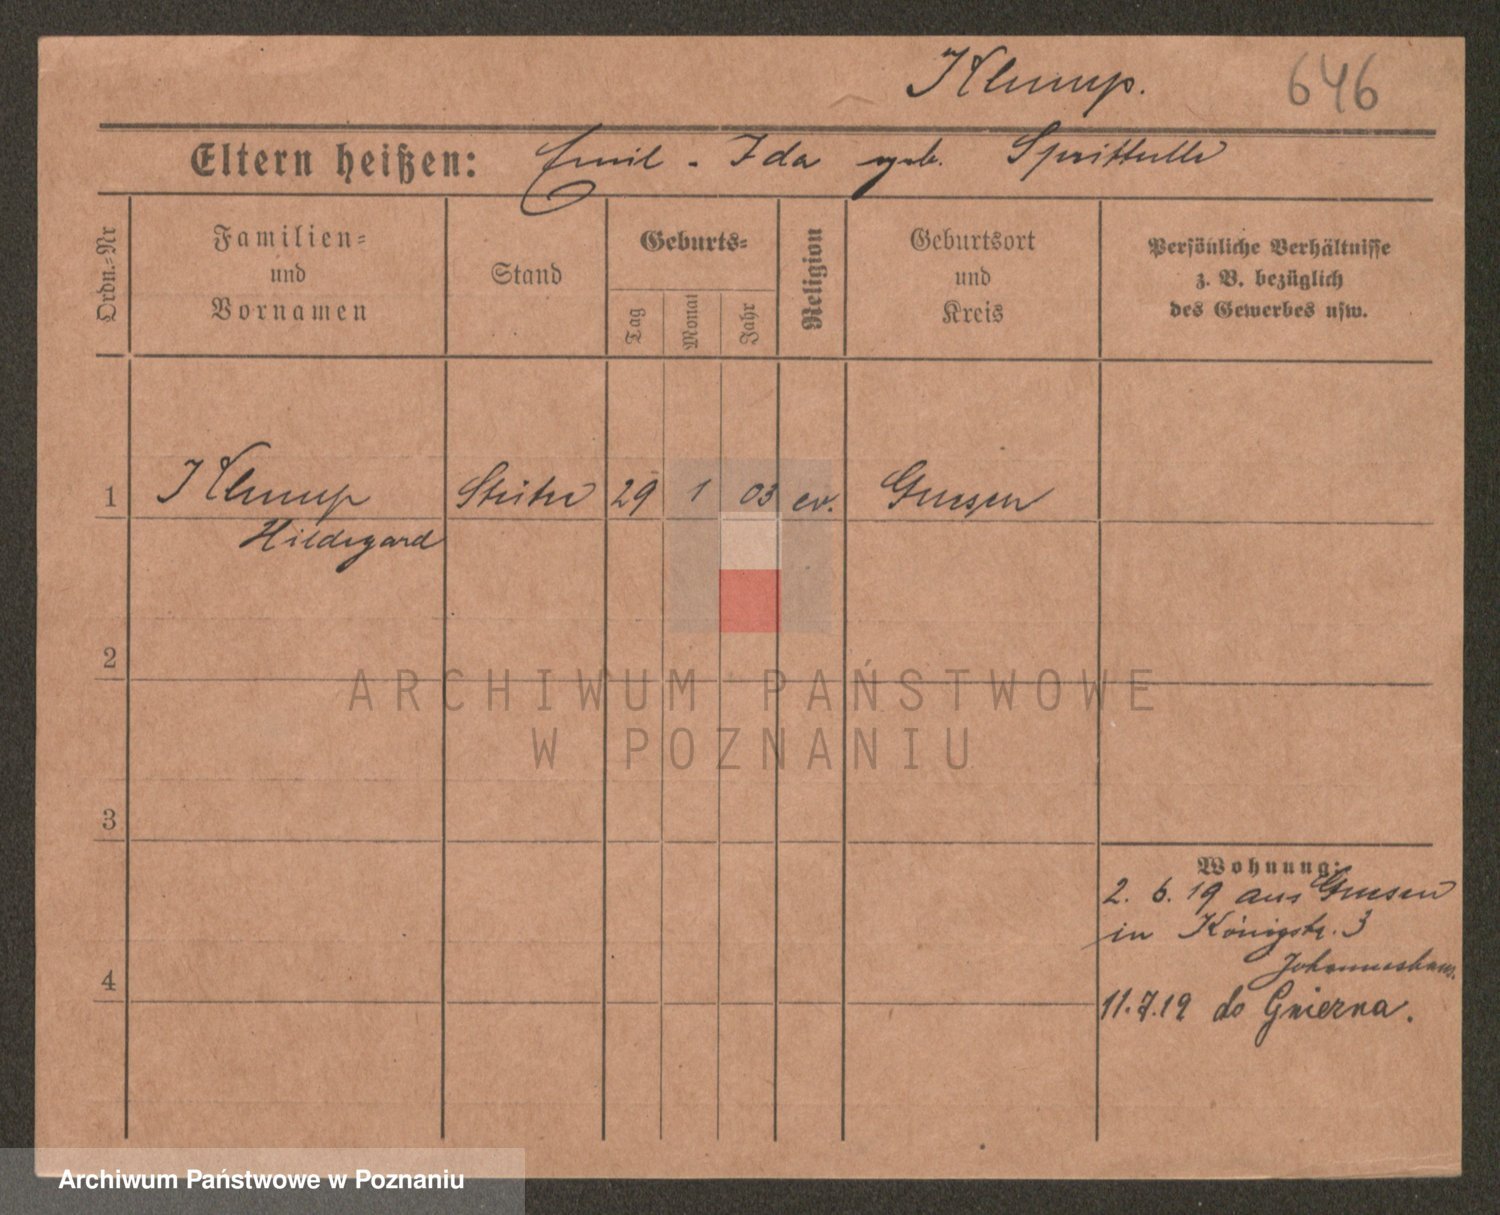 Klump.
646
Eltern heißen: Emil - Ida geb. Sprittulle
Ordn.=Nr
Familien=
und
Vornamen
Stand
Geburts=
Tag
Monat
Jahr
Religion
Geburtsort
und
Kreis
Persönliche Verhältnisse
z. B. bezüglich
des Gewerbes usw.
1 Klump Stütze 29 1 03 ev. Gnesen
Hildegard
2
3
4
Wohnung:
2. 6. 19 aus Gnesen
in Königstr. 3
Johanneshaus.
11.7.19 do Gniezna.
ARCHIWUM PAŃSTWOWE
W POZNANIU
Archiwum Państwowe w Poznaniu